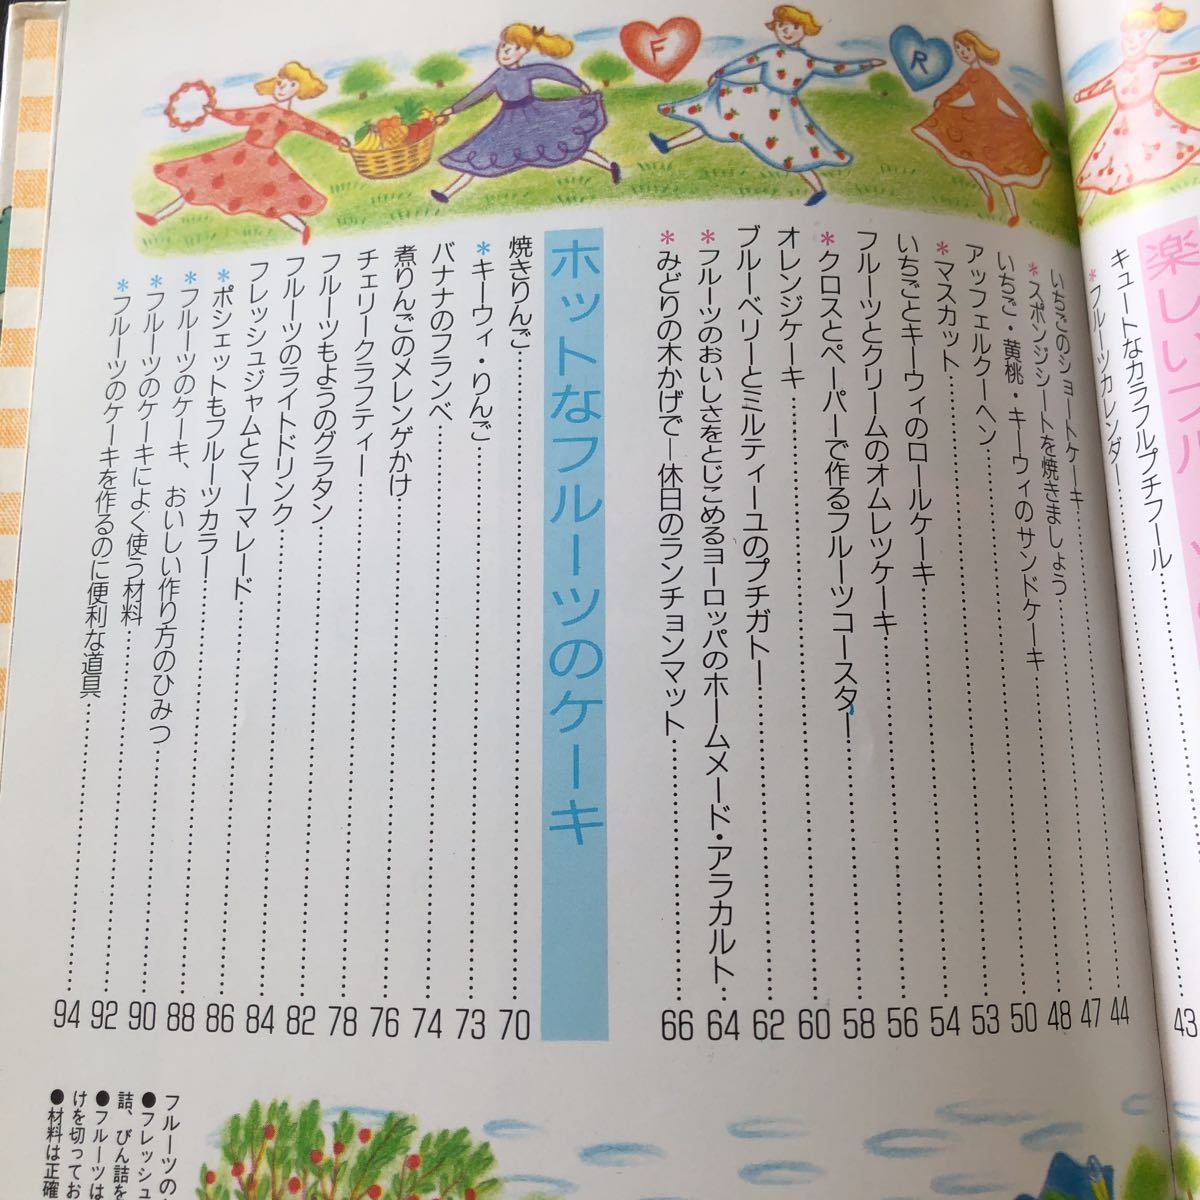 F
R
楽しいフル
キュートなカラフルプチフール……43
*フルーツカレンダー……
いちごのショートケーキ……44
*スポンジシートを焼きましょう……47
いちご・黄桃・キーウィのサンドケーキ……48
アッフェルクーヘン……50
*マスカット……53
いちごとキーウィのロールケーキ……54
フルーツとクリームのオムレツケーキ……56
*クロスとペーパーで作るフルーツコースター……58
オレンジケーキ……60
ブルーベリーとミルティーユのプチガトー……62
*フルーツのおいしさをとじこめるヨーロッパのホームメード・アラカルト……64
*みどりの木かげで―休日のランチョンマット……66
ホットなフルーツのケーキ
焼きりんご……70
*キーウィ・りんご……73
バナナのフランベ……74
煮りんごのメレンゲかけ……76
チェリークラフティー……78
フルーツもようのグラタン……82
フルーツのライトドリンク……84
フレッシュジャムとマーマレード……86
*ポシェットもフルーツカラー……88
*フルーツのケーキ、おいしい作り方のひみつ……90
*フルーツのケーキによく使う材料……92
*フルーツのケーキを作るのに便利な道具……94
フルーツの
●フレッシュ
詰、びん詰を
●フルーツは
けを切ってお
●材料は正確